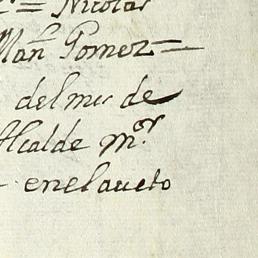 = Nicolas
Man Gomez =
del mes de
Alcalde mor.
en el aucto